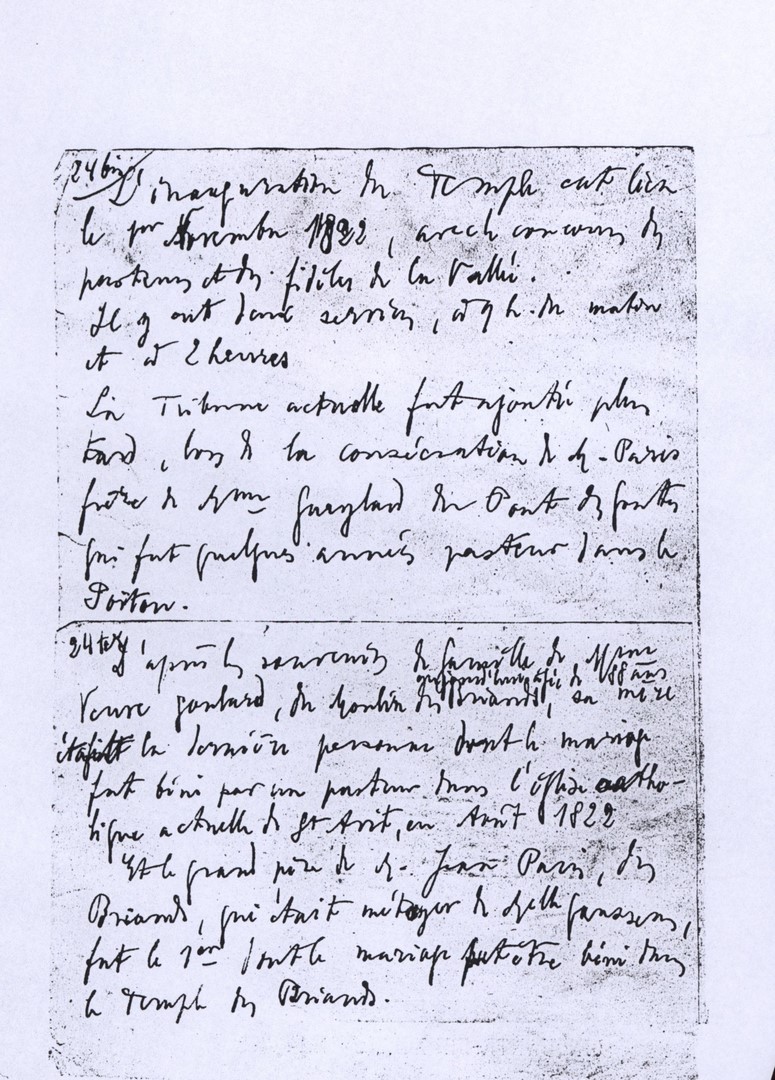 24 bis/ L'inauguration du Temple eut lieu
le 1er Novembre 1822, avec le concours des
pasteurs et des fidèles de la Vallée.
Il y eut deux services, à 9 h. du matin
et à 2 heures
La Tribune actuelle fut ajoutée plus
tard, lors de la consécration de M. Paris
frère de Mme Gueylard du Pont de Gouttes
qui fut quelques années pasteur dans le
Poitou.
24 ter/ D'après les souvenirs de famille de Mme
aujourd'hui âgée de 88 ans
Veuve Goulard, du Moulin des Briands, sa mère
était la dernière personne dont le mariage
fut béni par un pasteur dans l'Eglise catho-
lique actuelle de St Avit, en Août 1822
Et le grand père de M. Jean Paris, des
Briands, qui était métayer de Melle Gaussens,
fut le 1er dont le mariage put être béni dans
le Temple des Briands.